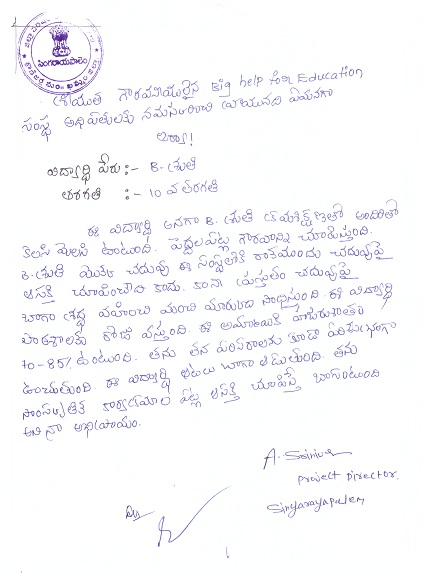 సింగరాయపాలెం
శ్రీయుత గౌరవనీయులైన Big help for Education
సంస్థ అధిపతులకు నమస్కరించి వ్రాయునది ఏమనగా
అయ్యా!
విద్యార్థి పేరు:- B. శ్రుతి
తరగతి :- 10 వ తరగతి
ఈ విద్యార్థి అనగా B. శ్రుతి క్రమశిక్షణతో అందరితో
కలసి మెలసి ఉంటుంది. పెద్దలపట్ల గౌరవాన్ని చూపిస్తుంది.
B. శ్రుతి మొదట చదువు ఈ సంస్థలోకి రాకముందు చదువుపై
ఆసక్తి చూపించేది కాదు. కానీ ప్రస్తుతం చదువుపై
బాగా శ్రద్ధ వహించి మంచి మార్కులు సాధిస్తుంది. ఈ విద్యార్థి
పాఠశాలకు రోజు వస్తుంది. ఈ అమ్మాయికి హాజరుశాతం
70-85% ఉంటుంది. తను తన పరిసరాలను కూడా పరిశుభ్రంగా
ఉంచుతుంది. ఈ విద్యార్థి ఆటలు బాగా ఆడుతుంది. తను
సాంస్కృతిక కార్యక్రమాల పట్ల ఆసక్తి చూపిస్తే బాగుంటుంది
అని నా అభిప్రాయం.
A. Srinivas
Project Director.
Singarayapalem